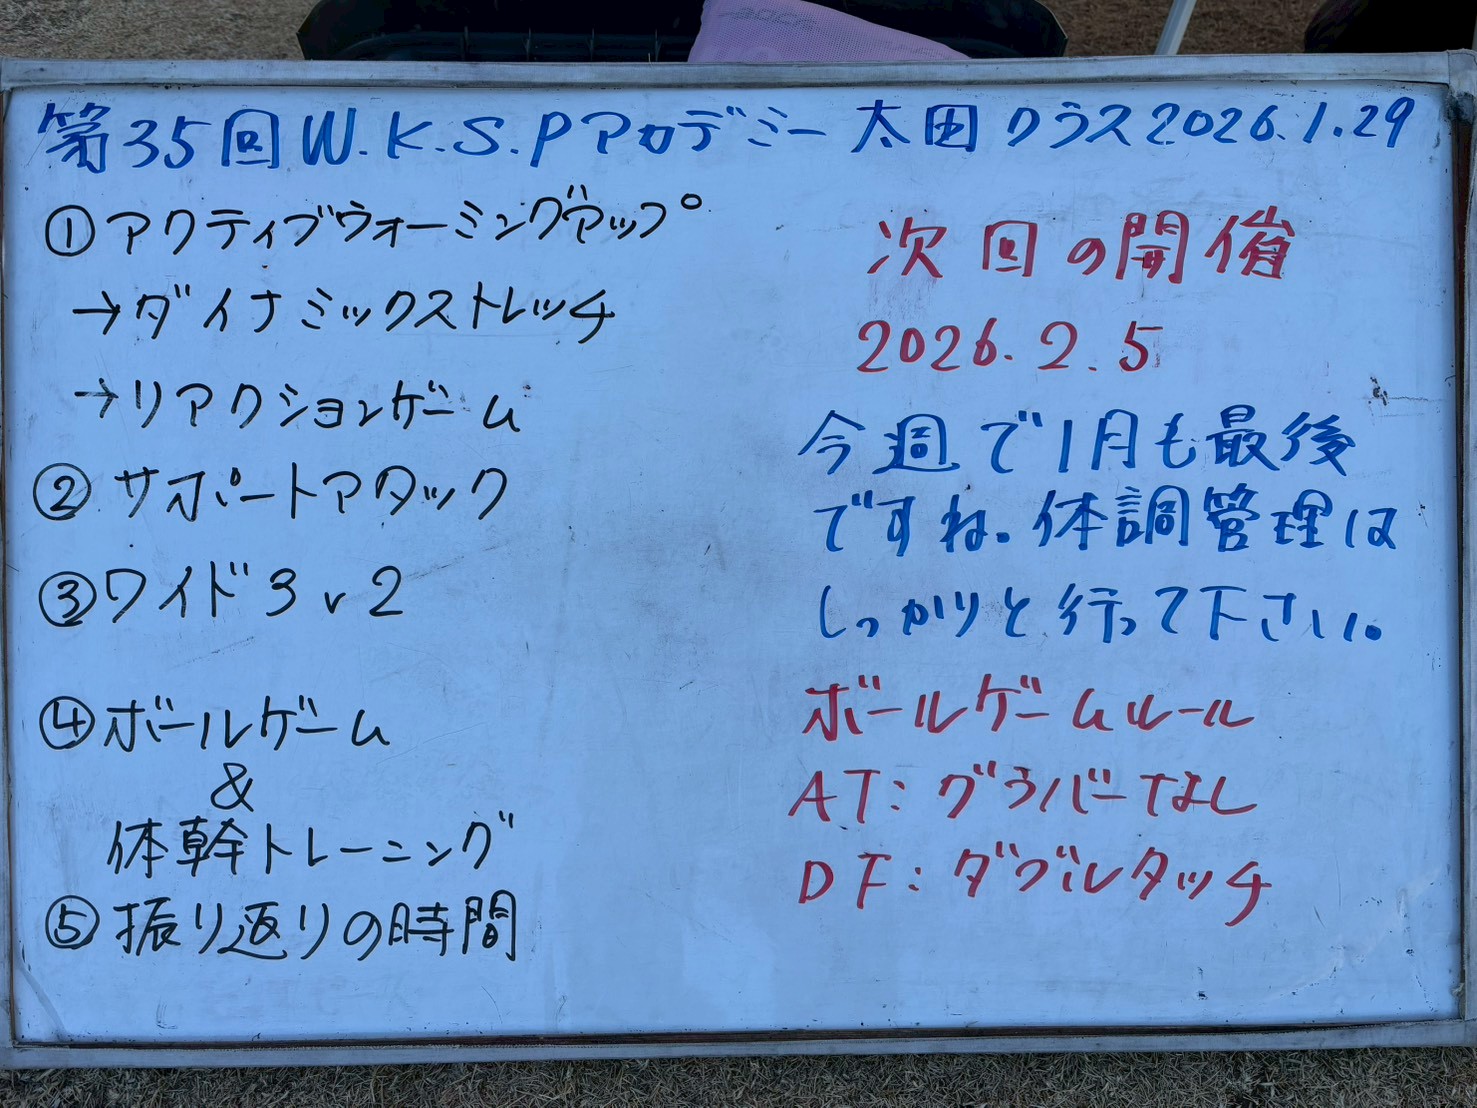 第35回W.K.S.Pアカデミー 太田クラス2026.1.29
①アクティブウォーミングアップ
→ダイナミックストレッチ
→リアクションゲーム
②サポートアタック
③ワイド3v2
④ボールゲーム
&
体幹トレーニング
⑤振り返りの時間
次回の開催
2026.2.5
今週で1月も最後
ですね。体調管理は
しっかりと行って下さい。
ボールゲームルール
AT:グラバーなし
DF:ダブルタッチ